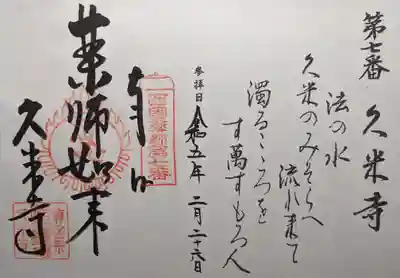 第七番 久米寺
法の水
久米のみそらへ
流れ来て
濁るこゝろを
す萬すもろ人
参拝日 令和五年 二月二十六日
奉拝
薬師如来
久米寺